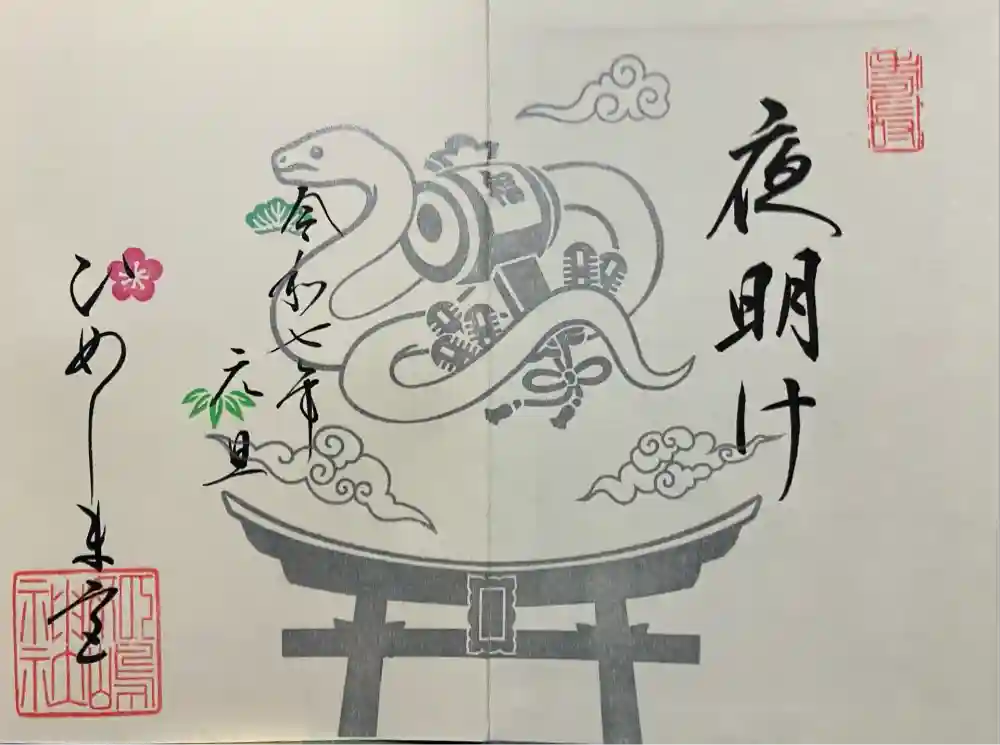 夜明け
福
令和七年
元旦
ひめしま宮